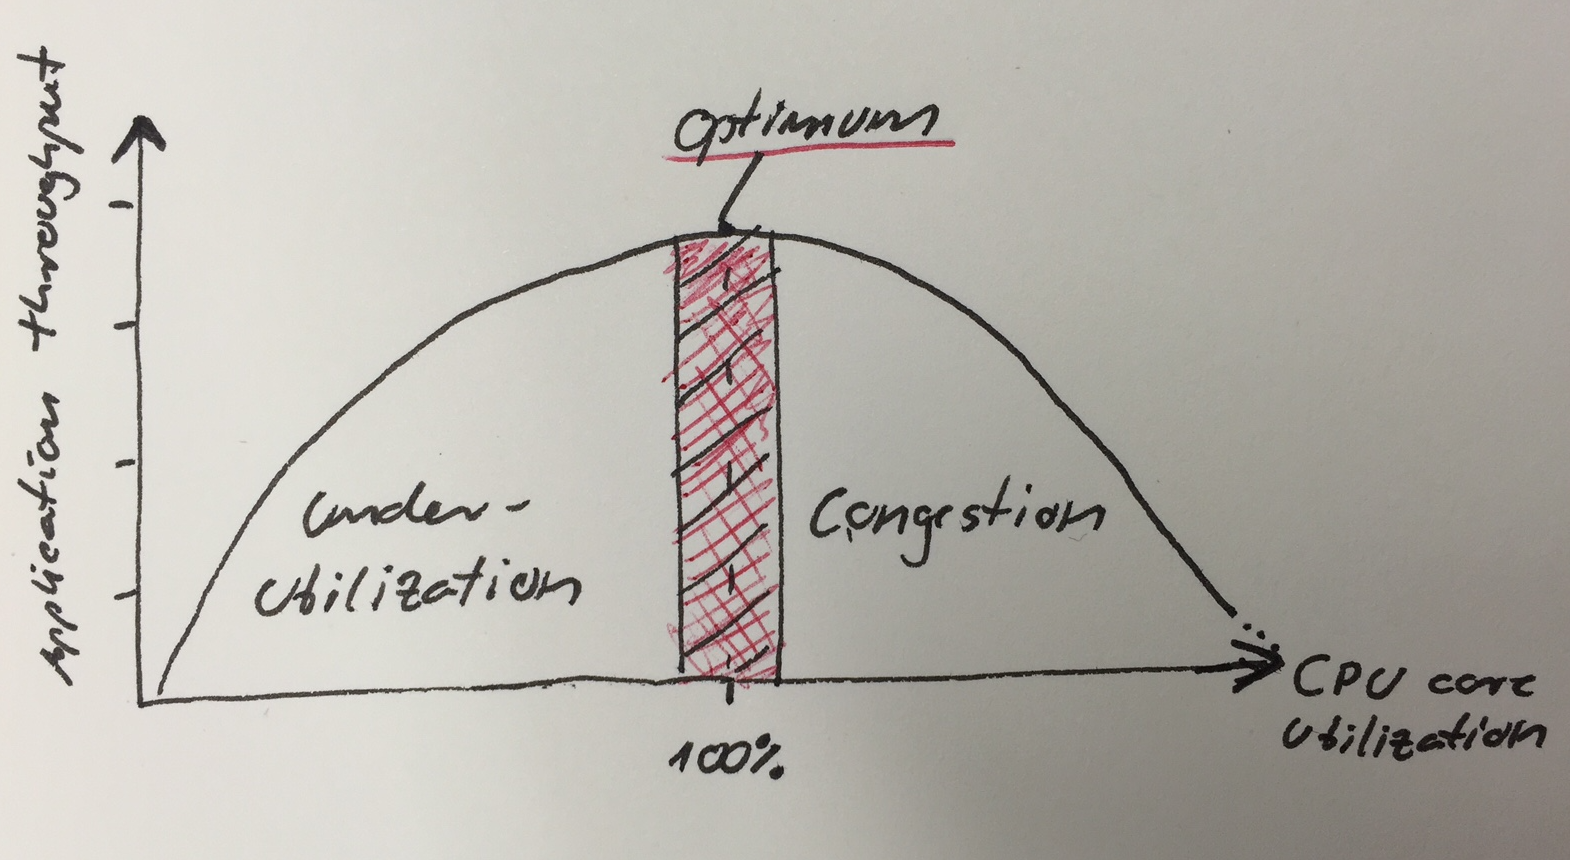 Application throughput
Optimum
Under-
utilization
Congestion
100%
CPU core
utilization